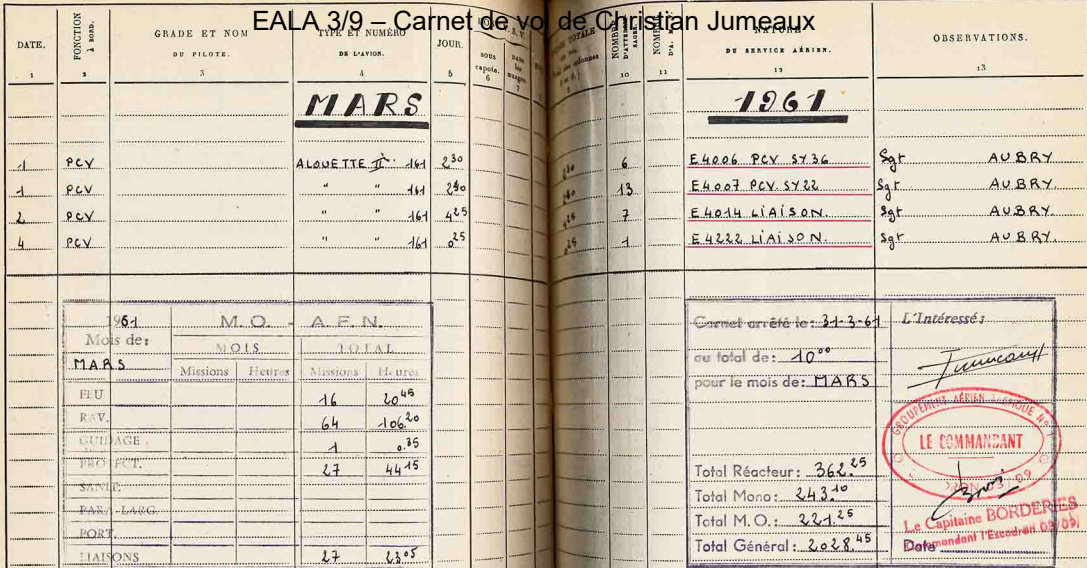 EALA 3/9 – Carnet de vol de Christian Jumeaux
DATE.
FONCTION À BORD.
GRADE ET NOM
DU PILOTE.
TYPE ET NUMÉRO
DE L'AVION.
JOUR.
sous capote.
dans les nuages.
TOTALE
NOMBRE
NOMBRE
NATURE
DU SERVICE AÉRIEN.
OBSERVATIONS.
1 2 3 4 5 6 7 10 11 12 13
MARS 1961
1 PCV ALOUETTE II 161 2 30 6 E4006 PCV SY 36 Sgt AUBRY
1 PCV " " 161 13 E4007 PCV SY 22 Sgt AUBRY.
2 PCV " " 161 4 25 7 E4014 LIAISON. Sgt AUBRY.
4 PCV " " 161 0 25 0 25 1 E4222 LIAISON. Sgt AUBRY.
1961 M.O. - A.F.N.
Mois de:
MARS
MOIS TOTAL
Missions Heures Missions Heures
FEU 16 20 45
RAV. 64 106 20
GUIDAGE 1 0.35
PROTECT. 27 44 15
SANIT.
PARA-LARG.
PORT.
LIAISONS 27 23 05
Carnet arrêté le: 31-3-61
au total de: 10 00
pour le mois de: MARS
Total Réacteur: 362.25
Total Mono: 243.10
Total M.O.: 221.25
Total Général: 2028.45
L'Intéressé:
GROUPEMENT AÉRIEN TACTIQUE N°
LE COMMANDANT
Le Capitaine BORDERIES
Commandant l'Escadron 03/09
Date